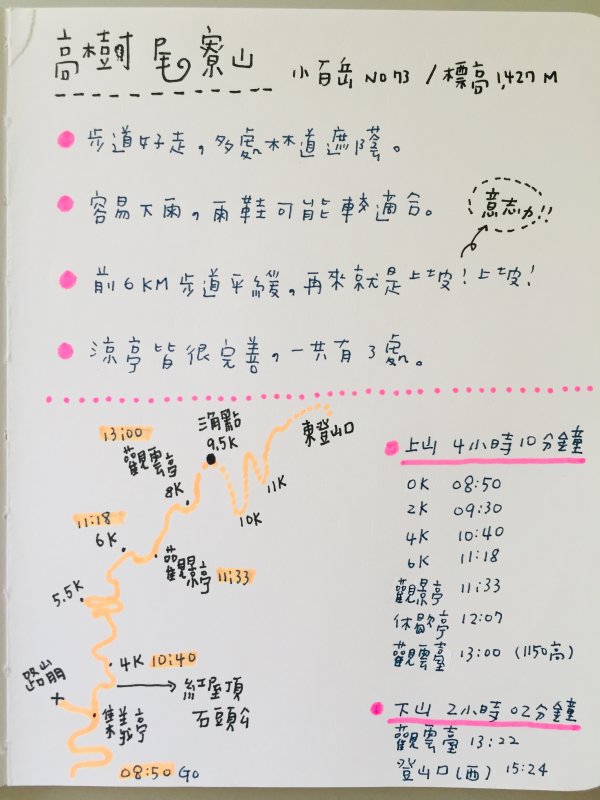 高樹 尾寮山 小百岳 NO 73 / 標高 1,427 M
步道好走，多處林道遮蔭。
容易下雨，雨鞋可能較適合。
意志力!!
前 6 KM 步道平緩，再來就是上坡！上坡！
涼亭皆很完善，一共有 3 處。
13:00
觀雲亭
三角點
9.5K
東登山口
8K
11K
10K
11:18
6K
觀景亭 11:33
5.5K
路崩
4K 10:40
紅屋頂
石頭公
集義亭
08:50 Go
上山 4 小時 10 分鐘
0K 08:50
2K 09:30
4K 10:40
6K 11:18
觀景亭 11:33
休歇亭 12:07
觀雲臺 13:00 (1150高)
下山 2 小時 02 分鐘
觀雲臺 13:22
登山口(西) 15:24